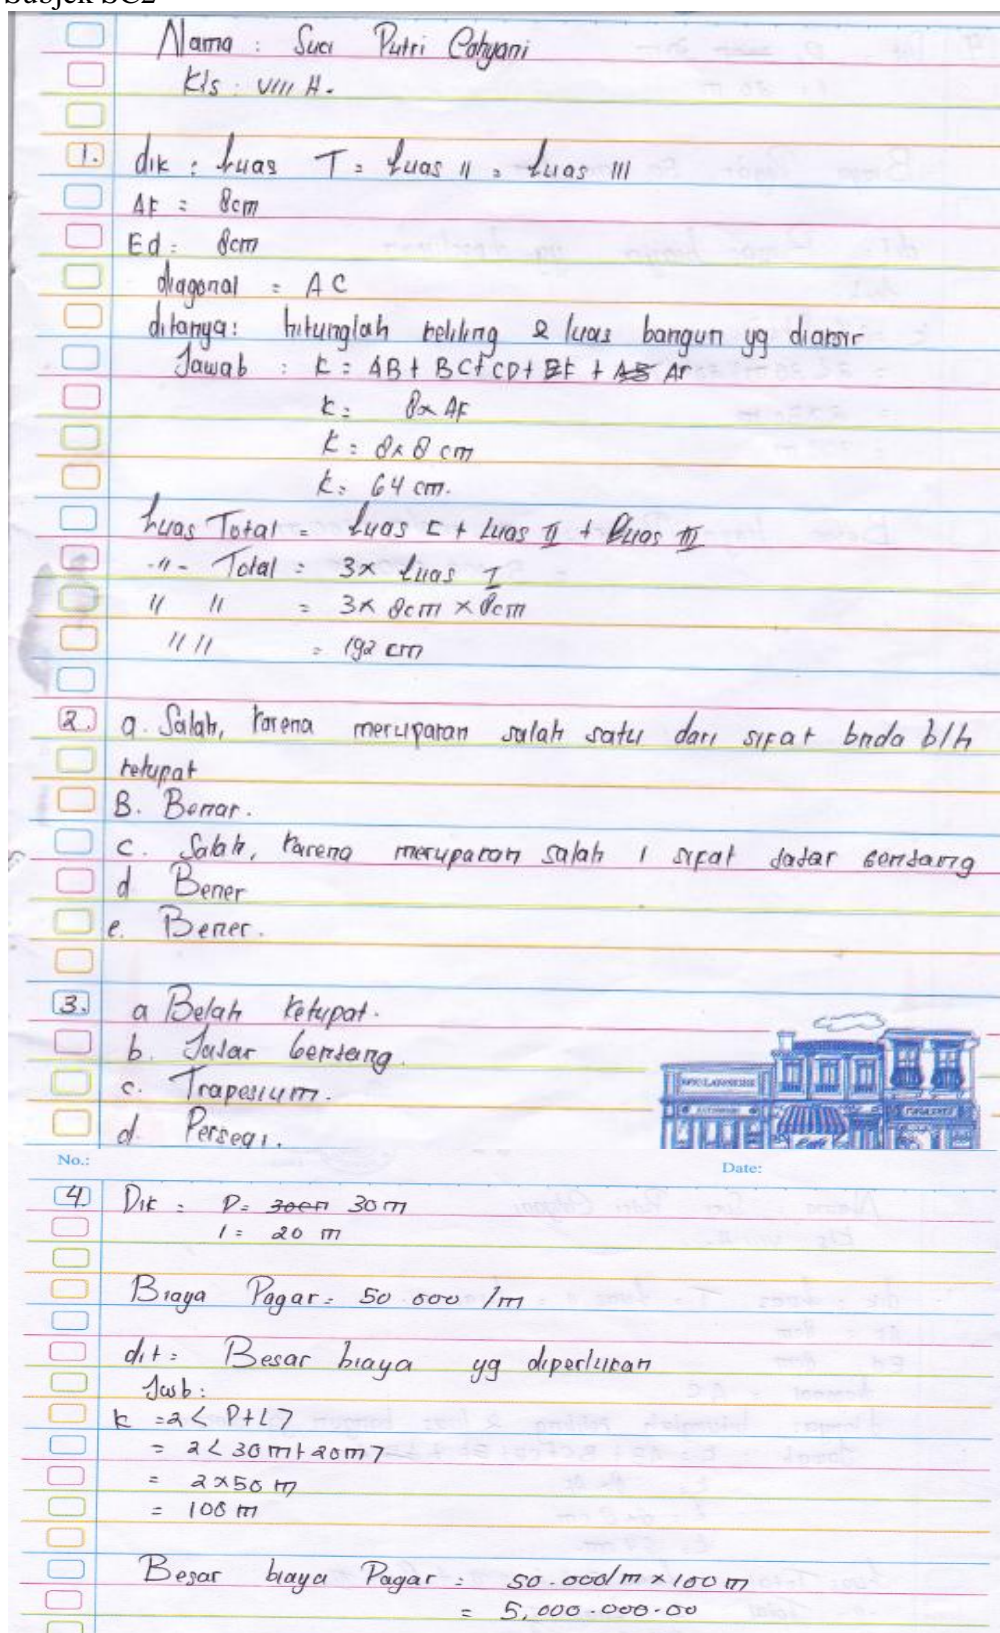 Subjek SC2
Nama : Suci Putri Cahyani
Kls : VIII H.
1. dik : Luas I = Luas II = Luas III
AF = 8cm
Ed = 8cm
diagonal = AC
ditanya : hitunglah keliling & luas bangun yg diarsir
Jawab : k = AB + BC + CD + EF + AB AF
k = 8 x AF
k = 8 x 8 cm
k = 64 cm.
Luas Total = Luas I + Luas II + Luas III
-"- Total = 3x Luas I
" " = 3x 8cm x 8cm
" " = 192 cm
2. a. Salah, karena merupakan salah satu dari sifat bnda blh
ketupat
B. Benar.
c. Salah, karena merupakan salah 1 sifat jajar genjang
d Bener
e. Bener.
3. a Belah ketupat.
b. Jajar genjang.
c. Trapesium.
d. Persegi.
No.: Date:
4. Dik : P = 30cm 30 m
l = 20 m
Biaya Pagar = 50.000 /m
dit = Besar biaya yg diperlukan
Jwb :
k = 2 < P+L >
= 2 < 30 m + 20 m >
= 2 x 50 m
= 100 m
Besar biaya Pagar = 50.000/m x 100 m
= 5,000.000.00